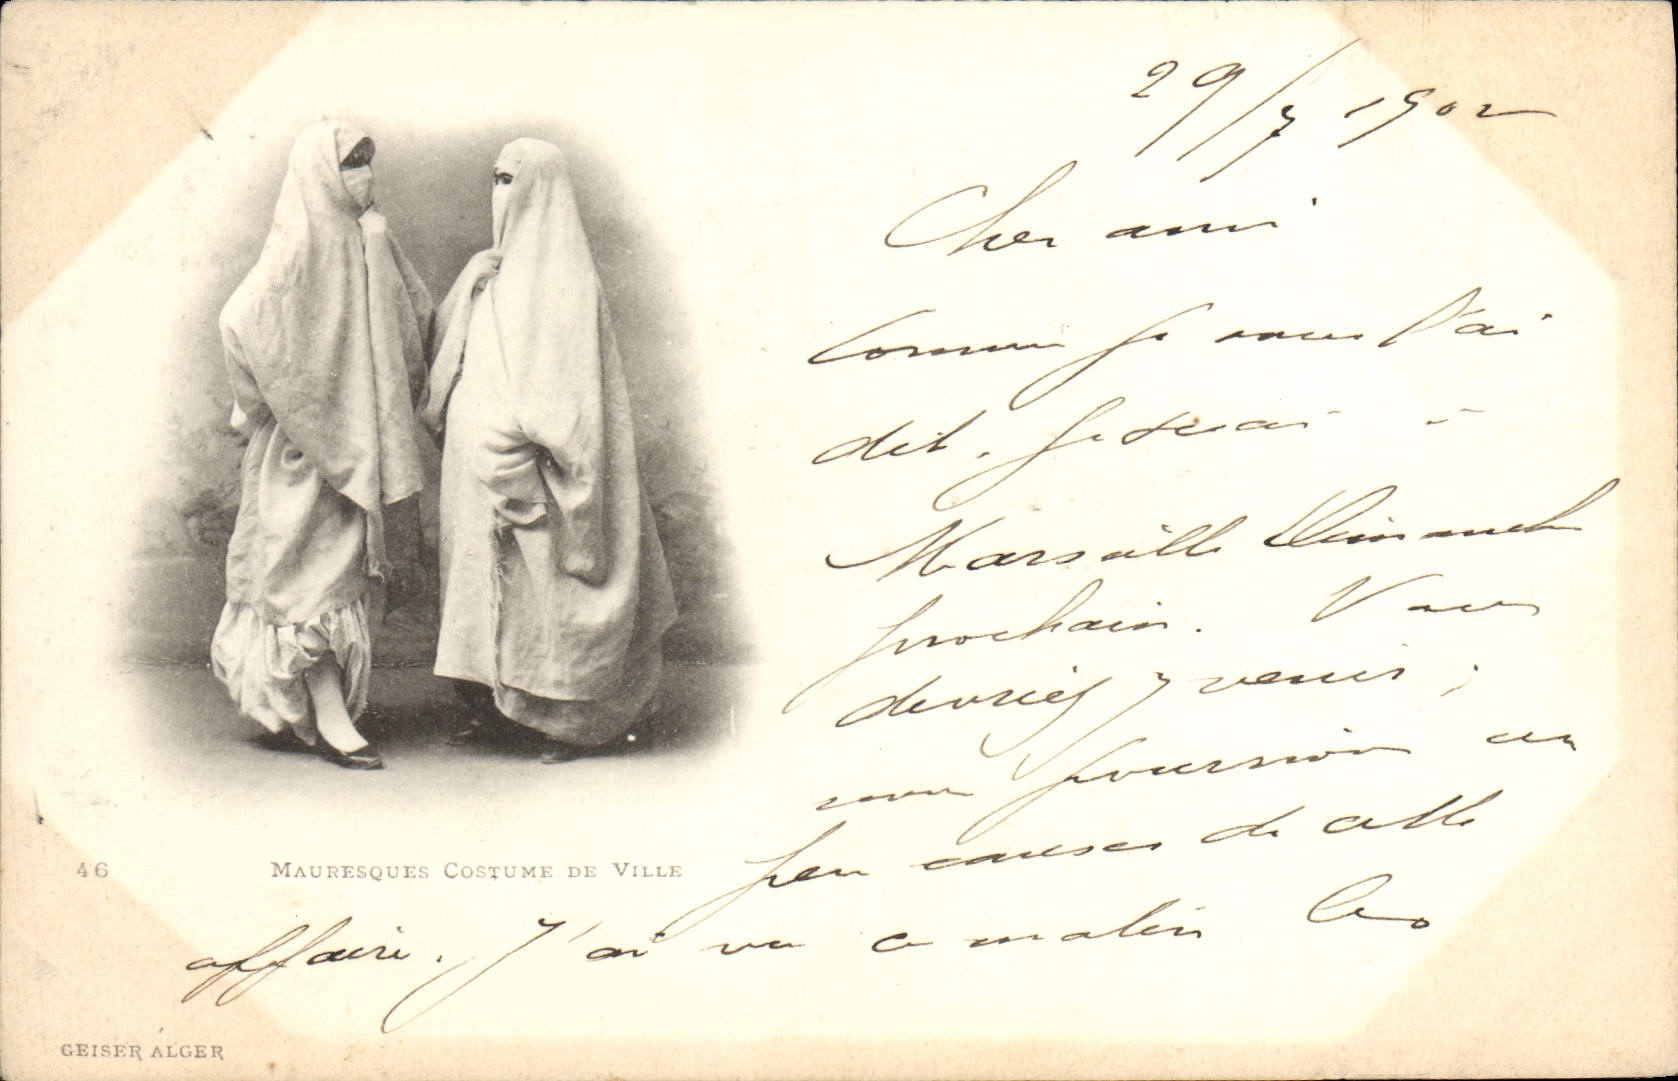 29/7 1902
Cher ami
Comme je vous l'ai
dit, je serai à
Marseille Dimanche
prochain. Vous
devriez y venir ;
nous pourrions un
peu causer de cette
affaire. J'ai vu ce matin Léo
46
MAURESQUES COSTUME DE VILLE
GEISER ALGER